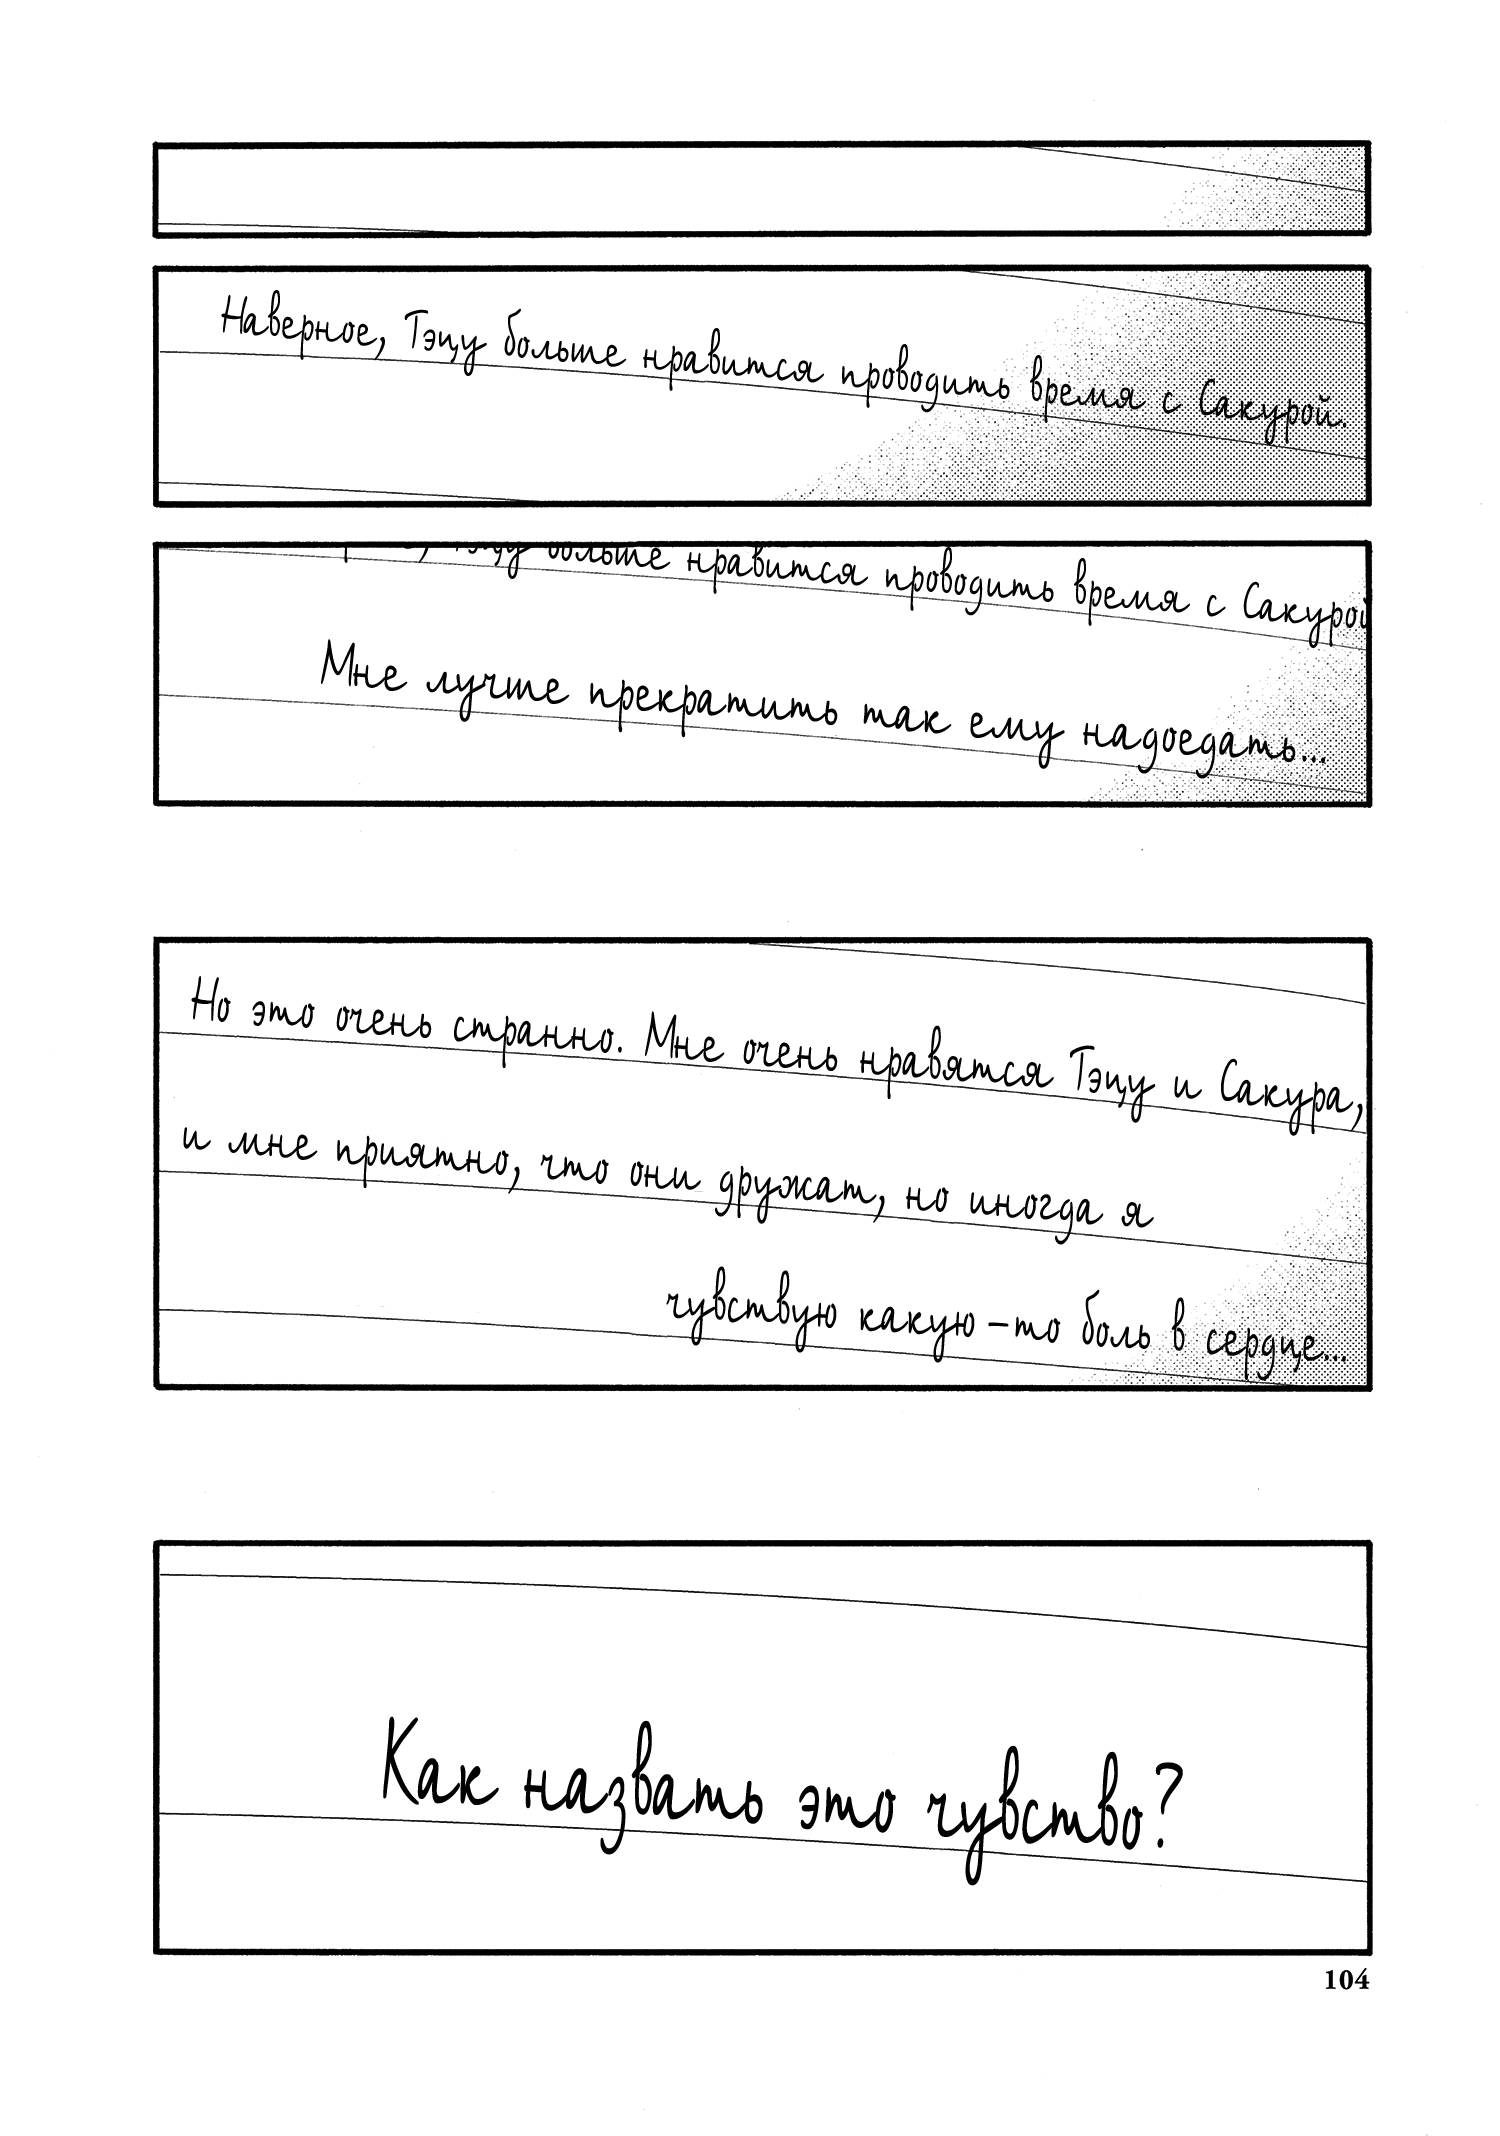 Наверное, Тэцу больше нравится проводить время с Сакурой.
Тэцу больше нравится проводить время с Сакурой
Мне лучше прекратить так ему надоедать...
Но это очень странно. Мне очень нравятся Тэцу и Сакура,
и мне приятно, что они дружат, но иногда я
чувствую какую-то боль в сердце...
Как назвать это чувство?
104